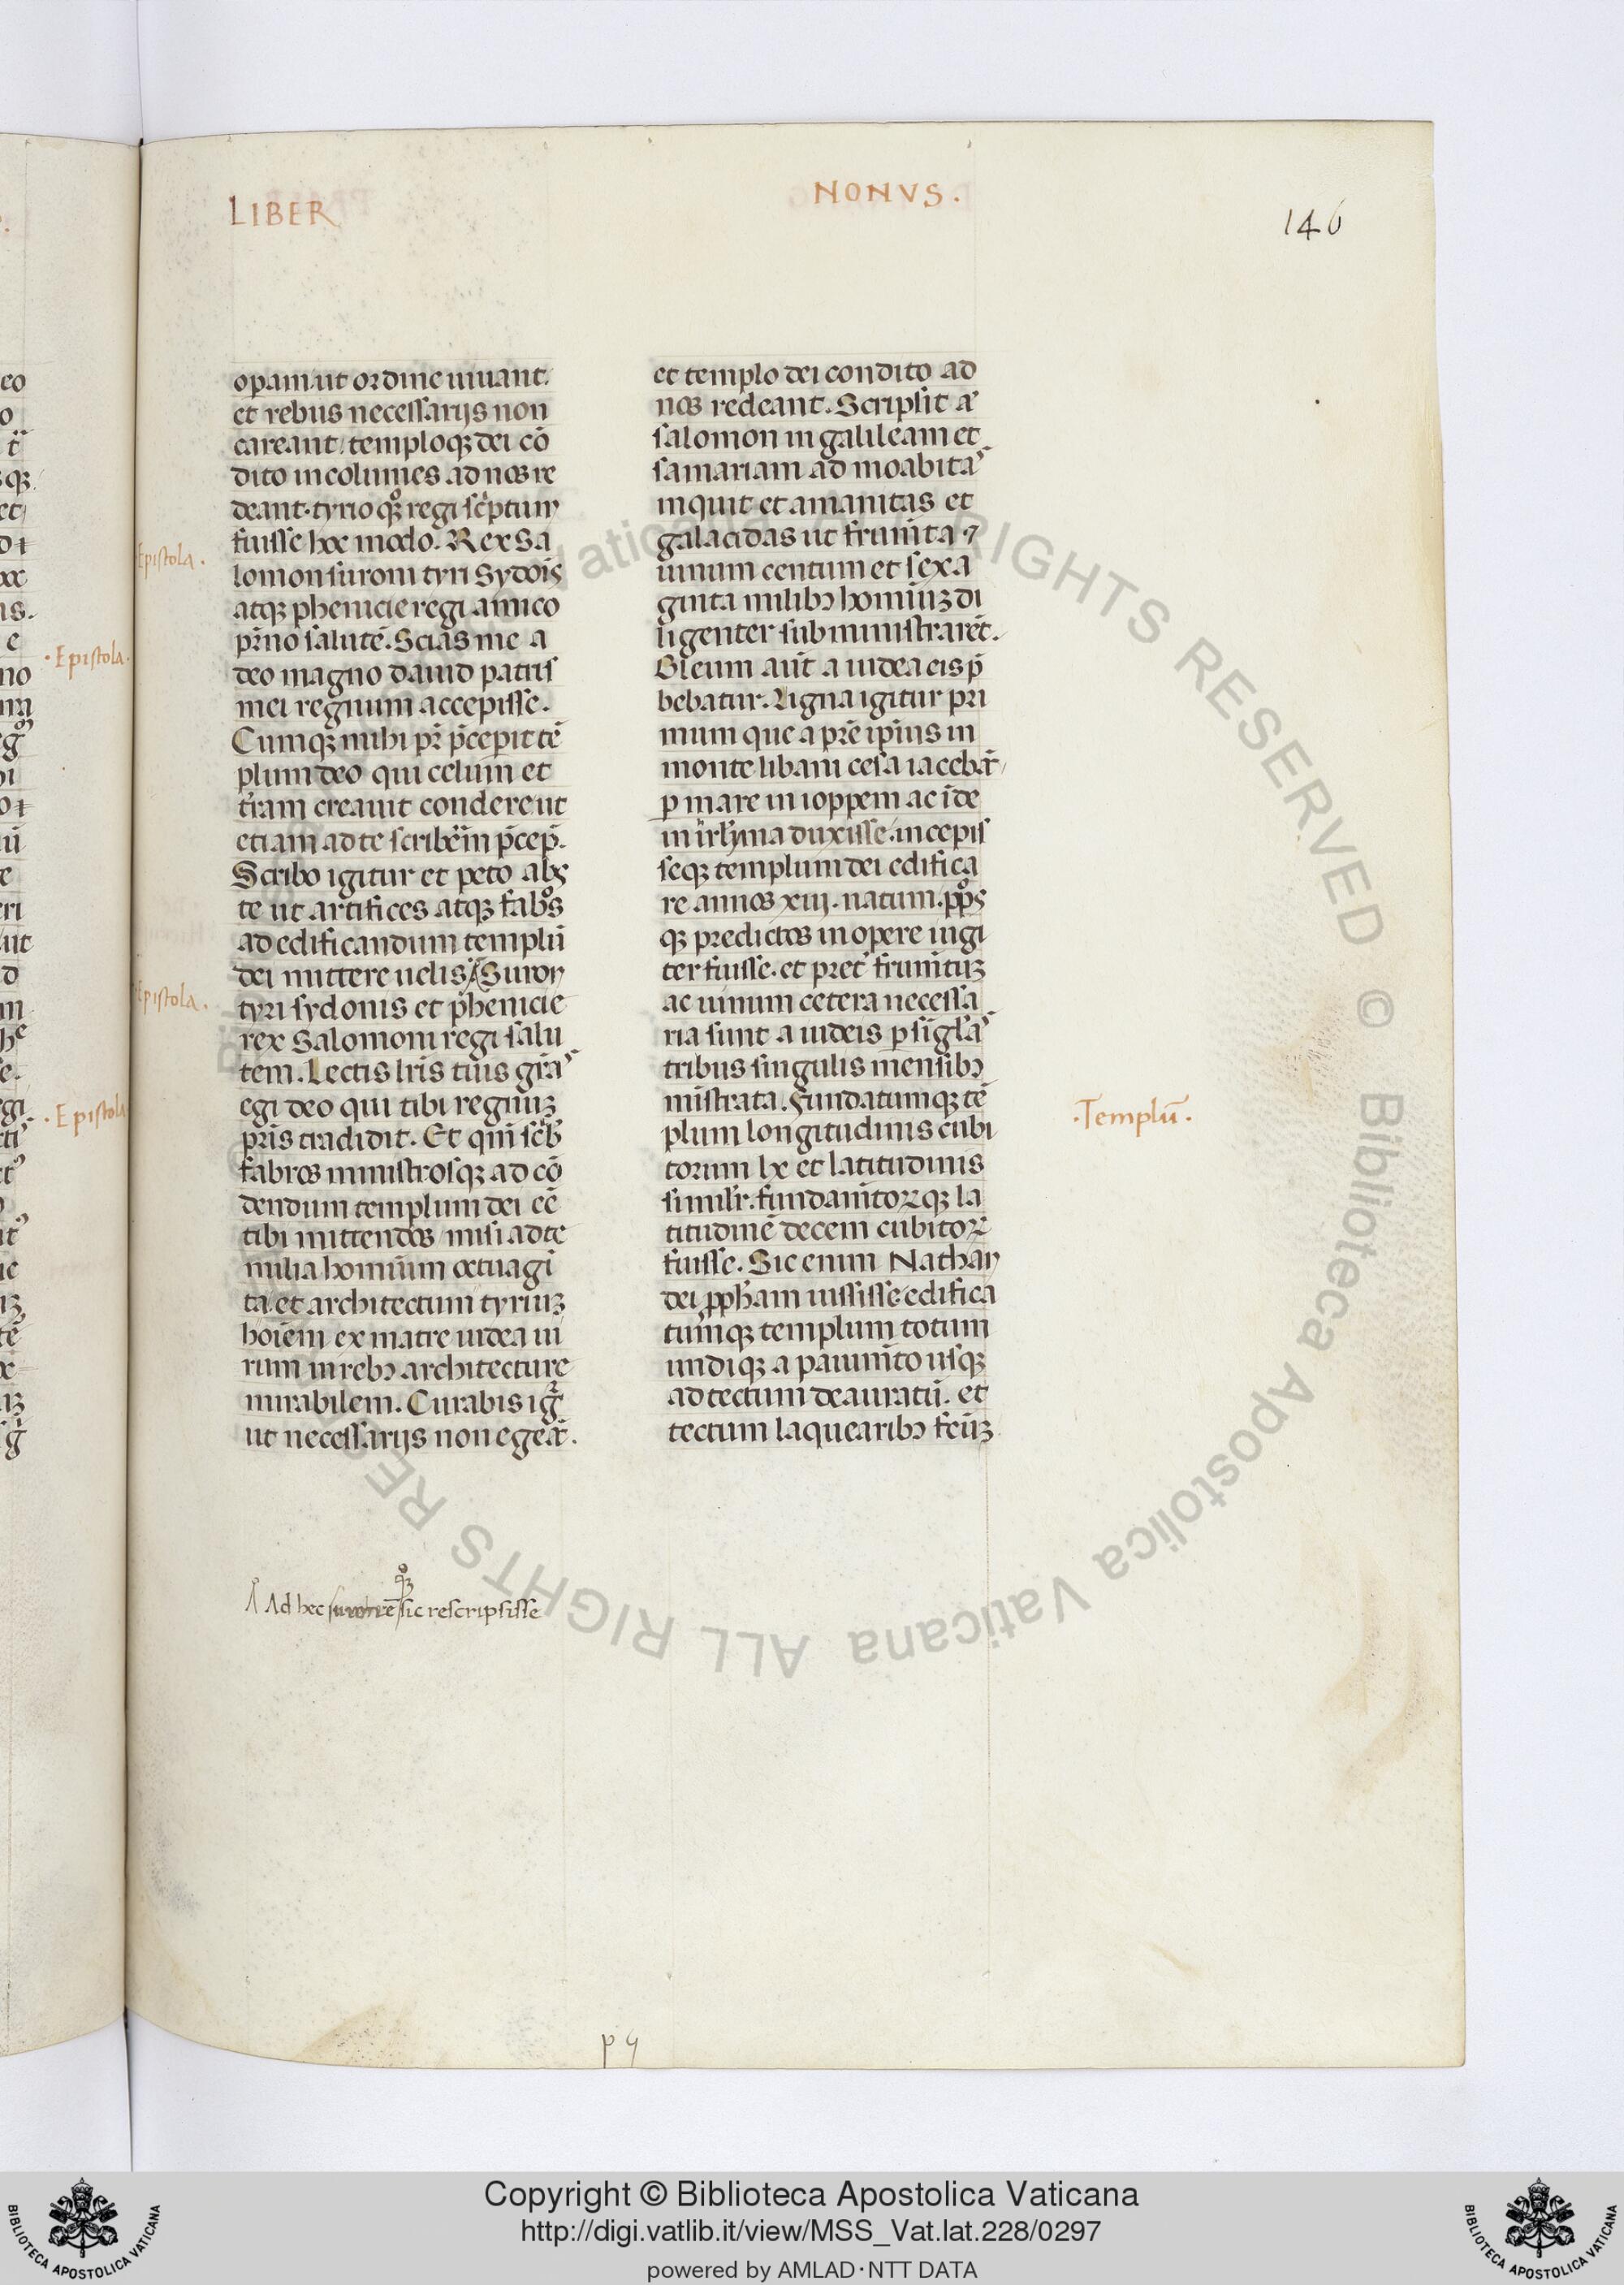 LIBER
NONVS.
146
opam. ut ordine uiuant.
et rebus necessarijs non
careant. temploqꝫ dei cō
dito incolumes ad nos re
deant. tyrio qꝫ̊ regi scͥptum
fuisse hoc modo. Rex Sa
lomon suroni tyri Sydoīs
atqꝫ phenicie regi amico
pr̄no salutē. Scias me a
deo magno dauid patris
mei regnum accepisse.
Cumqꝫ mihi pr̄ p̄cepit tē
plum deo qui celum et
tr̄am creauit condere ut
etiam ad te scriberem p̄cep̄.
Scribo igitur et peto abs
te ut artifices atqꝫ fabͦs
ad edificandum templū
dei mittere uelis. Suron
tyri sydonis et phenicie
rex Salomoni regi salu
tem. Lectis lr̄is tuis gr̄as
egi deo qui tibi regnuꝫ
pr̄is tradidit. Et qm̄ scͥb̄
fabros ministrosqꝫ ad cō
dendum templum dei eē
tibi mittendos / misi ad te
milia hominum octuagī
ta. et architectum tyriuꝫ
hoīem ex matre iudea ui
rum in rebꝫ architecture
mirabilem. Curabis igr̄
ut necessarijs non egeāt.
et templo dei condito ad
nos redeant. Scripsit āt
salomon in galileam et
samariam ad moabitas
inquit et amanitas et
galacidas ut frumīta ⁊
uinum centum et sexa
ginta milibꝫ hominuꝫ di
ligenter subministrarēt.
Oleum aūt a iudea eis p̄
bebatur. Ligna igitur pri
mum que a pr̄e ipsius in
monte libani cesa iacebāt /
ꝑ mare in ioppem ac īde
in irlȳma duxisse. incepis
seqꝫ templum dei edifica
re annos xiij. natum. pp̊s
qꝫ predictos in opere iugi
ter fuisse. et preter frumētuꝫ
ac uinum cetera necessa
ria sunt a iudeis ꝑ siglas
tribus singulis mensibꝫ
mistrata. Fundatumqꝫ tē
plum longitudinis cubi
torum lx et latitudinis
similr̄. fundamītoꝝqꝫ la
titudinē decem cubitoꝝ
fuisse. Sic enim Nathan
dei ꝓph̄am iussisse. edifica
tumqꝫ templum totum
undiqꝫ a pauimīto usqꝫ
ad tectum deauratū. et
tectum laquearibꝫ feīsꝫ
Epistola.
Epistola.
.Templū.
.Epistola.
.Epistola
Ad hec qꝫ̊ sic rescripsisse
p 4
© Biblioteca Apostolica Vaticana ALL RIGHTS RESERVED
Copyright © Biblioteca Apostolica Vaticana
http://digi.vatlib.it/view/MSS_Vat.lat.228/0297
powered by AMLAD·NTT DATA
BIBLIOTECA APOSTOLICA VATICANA
BIBLIOTECA APOSTOLICA VATICANA